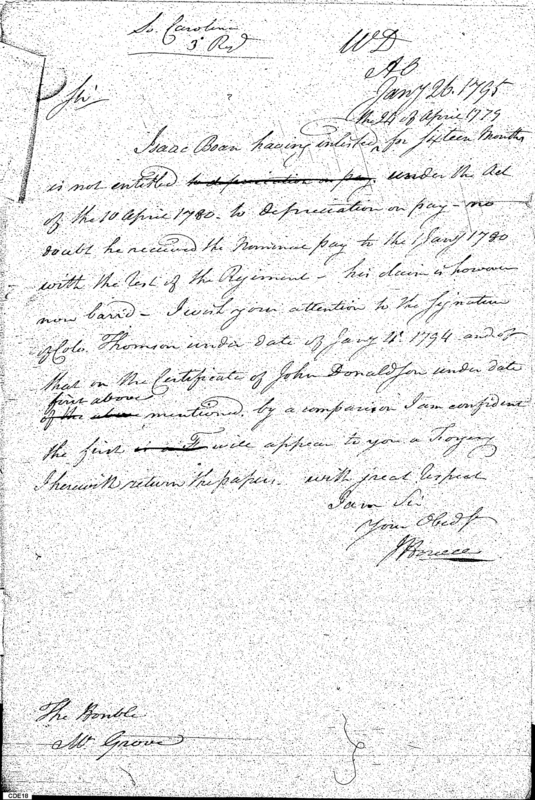 So. Carolina
3d Regt
WD
AO
Jany 26. 1795
Sir
the 24 of April 1779
Isaac Boan having enlisted for sixteen Months
is not entitled to depreciation on pay under the Act
of the 10 April 1780 - to depreciation on pay - no
doubt he received the Nominal pay to the 1 Jany 1780
with the rest of the Regiment - his claim is however
now barrd - I wish your attention to the signature
of Colo. Thomson under date of Jany 4. 1794 and of
that on the Certificate of John Donaldson under date
first above
of the above mentioned. by a comparison I am confident
the first is a F will appear to you a Forgery
I herewith return the papers. with great respect
I am Sir
Your Obed St
The Honble
Mr Grove
CDE18